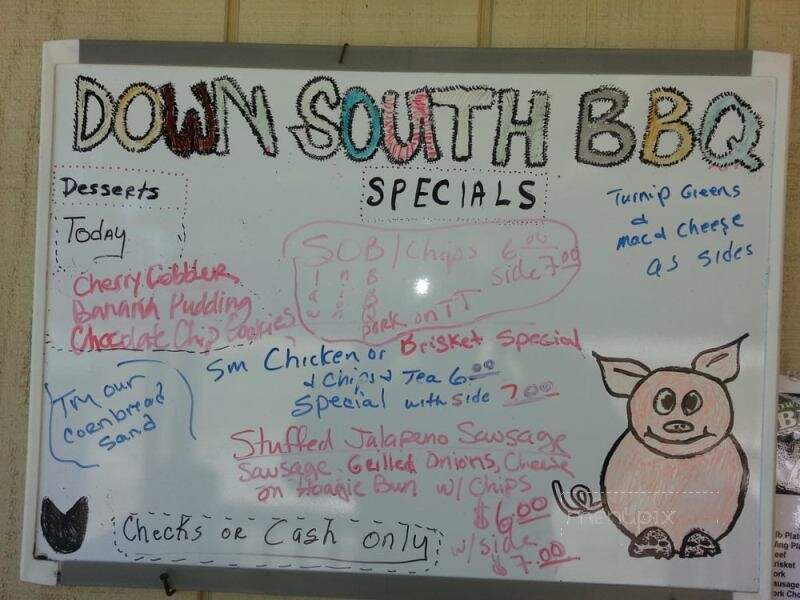 DOWN SOUTH BBQ
Desserts
Today
Cherry Cobbler
Banana Pudding
Chocolate Chip Cookies
SPECIALS
SOB/Chips 6.00
side 7.00
pork on TT
Turnip Greens
&
Mac & Cheese
as sides
Sm Chicken or Brisket Special
& Chips & Tea 6.00
Special with side 7.00
Try our
Cornbread
Sand
Stuffed Jalapeno Sausage
Sausage Grilled Onions, Cheese
on Hoagie Bun w/ Chips
$6.00
w/side
$7.00
Checks or Cash only
menupix